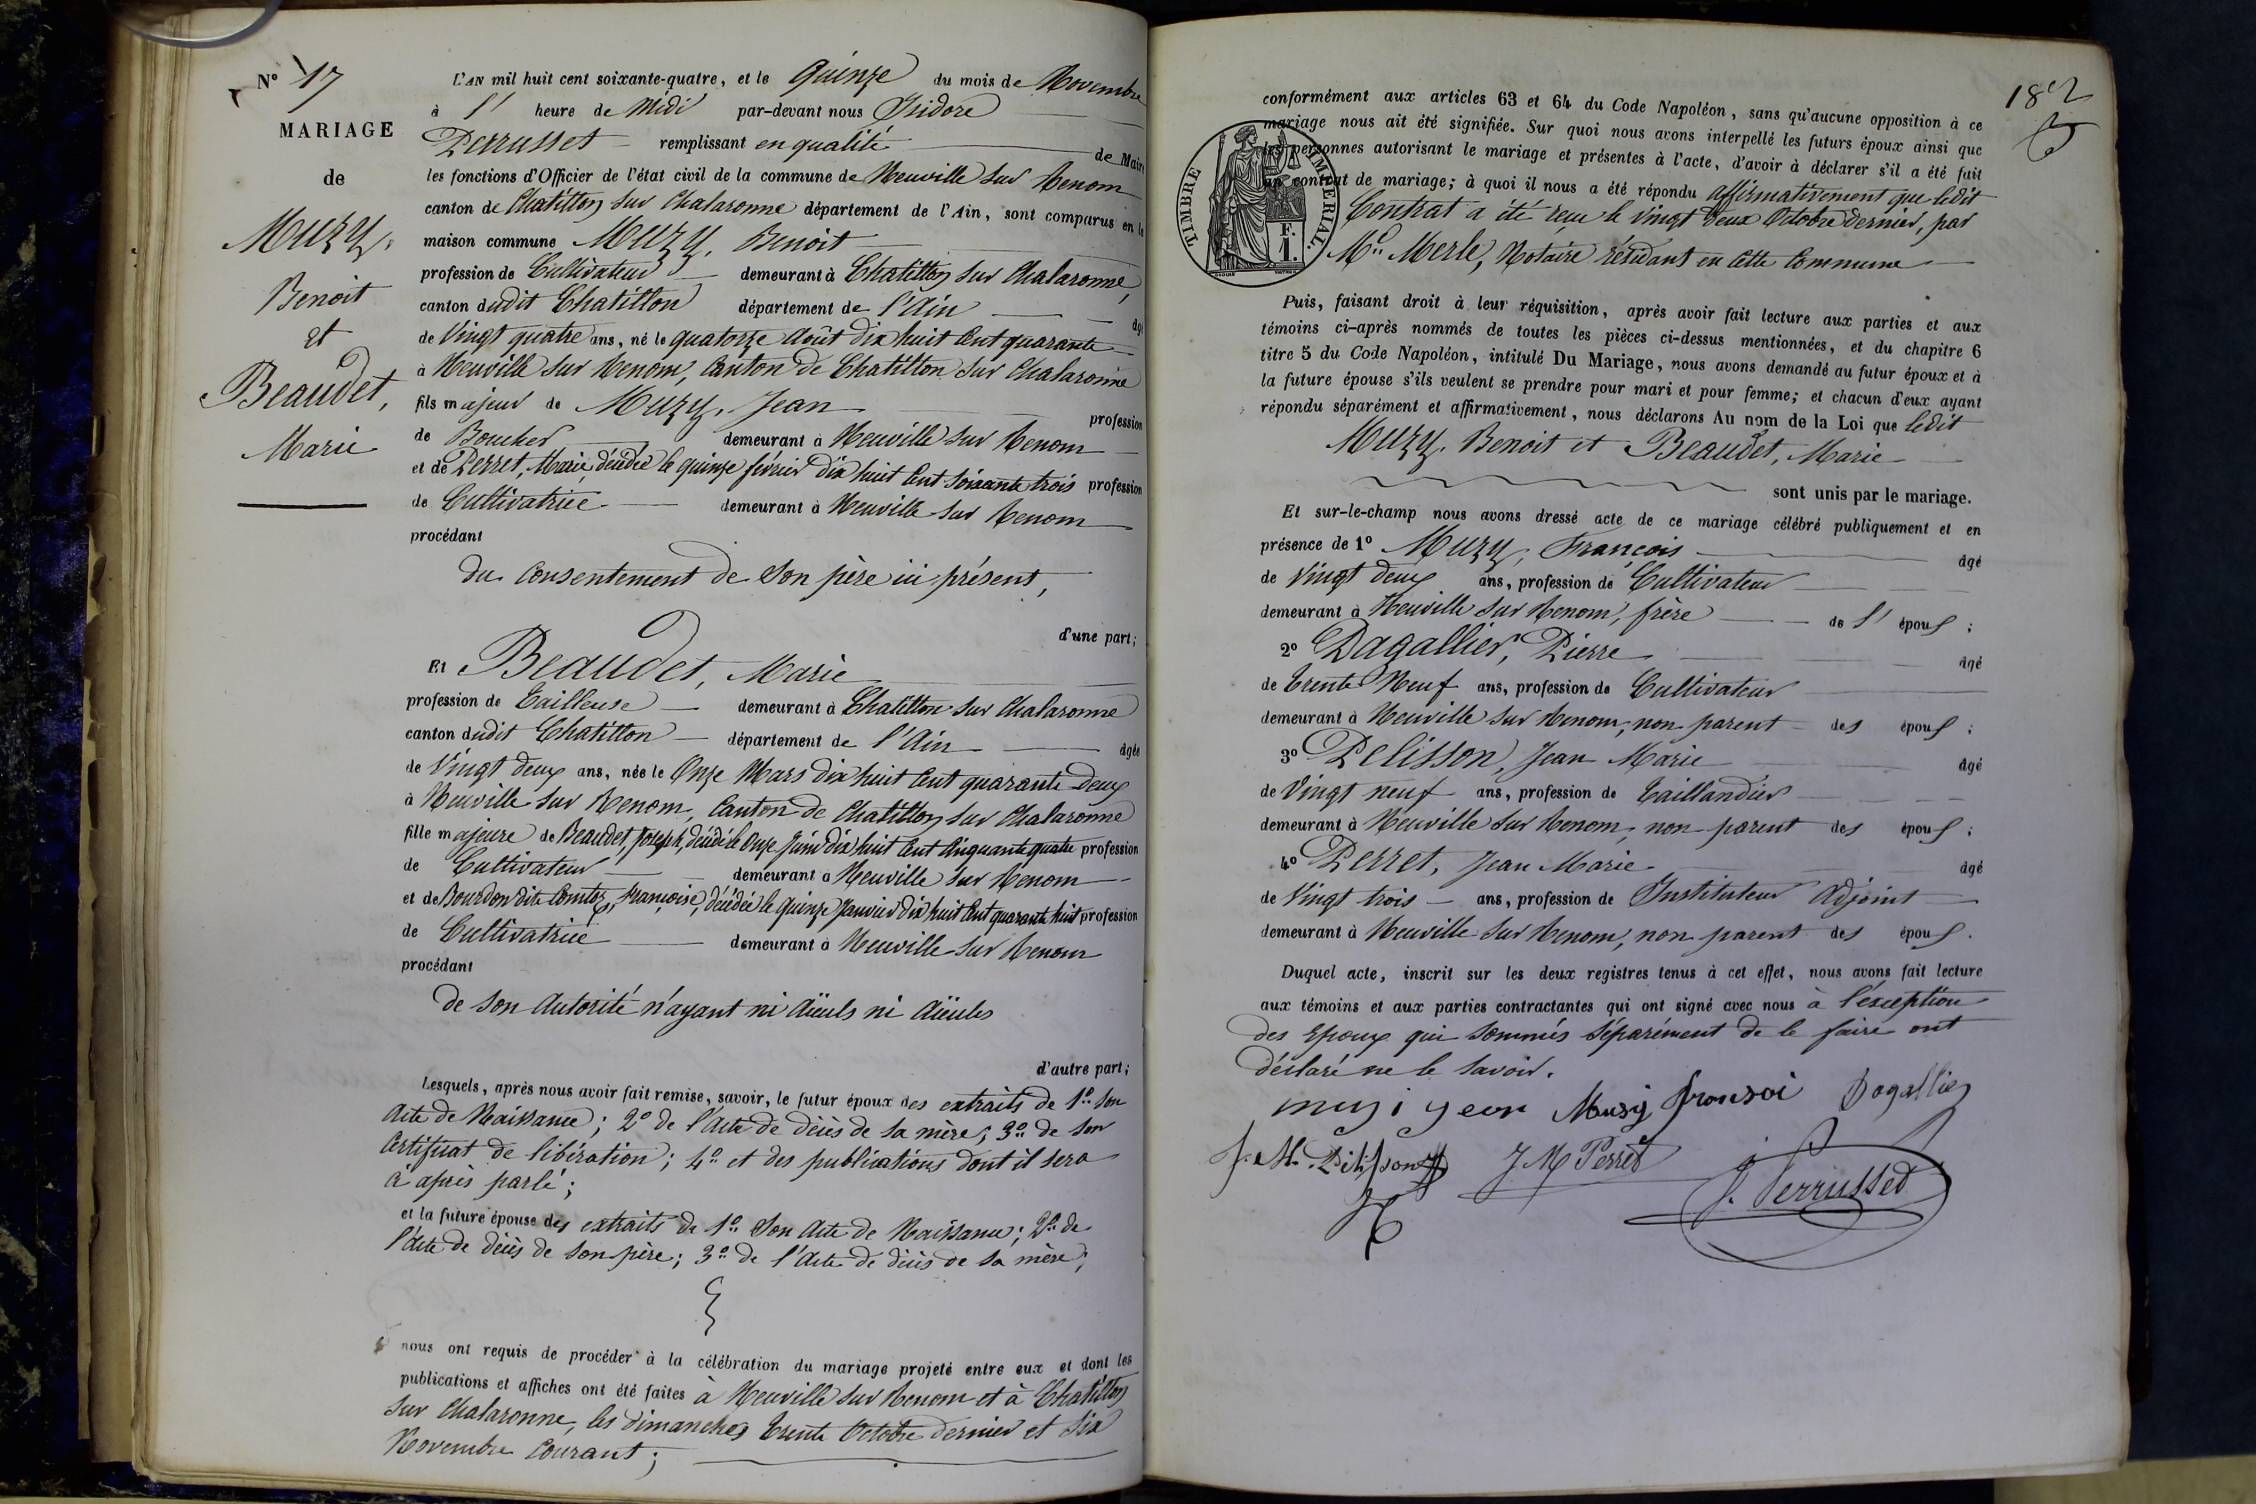 N° 17
MARIAGE
de
Muzy,
Benoit
et
Beaudet,
Marie
L'AN mil huit cent soixante-quatre, et le Quinze du mois de Novembre
à l' heure de Midi par-devant nous Isidore
Perrusset remplissant en qualité de Maire
les fonctions d'Officier de l'état civil de la commune de Neuville sur Renom
canton de Chatillon sur Chalaronne département de l'Ain, sont comparus en la
maison commune Muzy, Benoit
profession de Cultivateur demeurant à Chatillon sur Chalaronne,
canton dudit Chatillon département de l'Ain âgé
de Vingt quatre ans, né le quatorze Août dix huit Cent quarante
à Neuville sur Renom, Canton de Chatillon sur Chalaronne
fils majeur de Muzy, Jean profession
de Boucher demeurant à Neuville sur Renom
et de Perret, Marie, décédée le quinze février dix huit Cent Soixante trois profession
de Cultivatrice demeurant à Neuville sur Renom
procédant
du consentement de son père ici présent,
d'une part;
Et Beaudet, Marie
profession de Tailleuse demeurant à Chatillon sur Chalaronne
canton dudit Chatillon département de l'Ain âgée
de Vingt deux ans, née le Onze Mars dix huit Cent quarante Deux
à Neuville sur Renom, Canton de Chatillon sur Chalaronne
fille majeure de Beaudet, Joseph, décédé le Onze Juin dix huit Cent Cinquante quatre profession
de Cultivateur demeurant à Neuville sur Renom
et de Bourdon dite Comtet, Françoise, décédée le Quinze Janvier dix huit Cent quarante huit profession
de Cultivatrice demeurant à Neuville sur Renom
procédant
de son Autorité n'ayant ni Aïeuls ni Aïeules
d'autre part;
Lesquels, après nous avoir fait remise, savoir, le futur époux des extraits de 1° Son
Acte de Naissance; 2° de l'Acte de décès de sa mère; 3° de son
Certificat de libération; 4° et des publications dont il sera
ci après parlé;
et la future épouse des extraits de 1° Son Acte de Naissance; 2° de
l'Acte de décès de son père; 3° de l'Acte de décès de sa mère;
nous ont requis de procéder à la célébration du mariage projeté entre eux et dont les
publications et affiches ont été faites à Neuville sur Renom et à Chatillon
sur Chalaronne, les dimanches Trente Octobre dernier et Six
Novembre Courant;
182
TIMBRE IMPÉRIAL.
F.
1.
conformément aux articles 63 et 64 du Code Napoléon, sans qu'aucune opposition à ce
mariage nous ait été signifiée. Sur quoi nous avons interpellé les futurs époux ainsi que
les personnes autorisant le mariage et présentes à l'acte, d'avoir à déclarer s'il a été fait
un contrat de mariage; à quoi il nous a été répondu affirmativement que ledit
Contrat a été reçu le Vingt Deux Octobre dernier, par
Me Merle, Notaire résidant en cette Commune
Puis, faisant droit à leur réquisition, après avoir fait lecture aux parties et aux
témoins ci-après nommés de toutes les pièces ci-dessus mentionnées, et du chapitre 6
titre 5 du Code Napoléon, intitulé Du Mariage, nous avons demandé au futur époux et à
la future épouse s'ils veulent se prendre pour mari et pour femme; et chacun d'eux ayant
répondu séparément et affirmativement, nous déclarons Au nom de la Loi que ledit
Muzy, Benoit et Beaudet, Marie
sont unis par le mariage.
Et sur-le-champ nous avons dressé acte de ce mariage célébré publiquement et en
présence de 1° Muzy, François âgé
de Vingt Deux ans, profession de Cultivateur
demeurant à Neuville sur Renom, frère de l' époux;
2° Dagallier, Pierre âgé
de Trente Neuf ans, profession de Cultivateur
demeurant à Neuville sur Renom, non parent des époux;
3° Pelisson, Jean Marie âgé
de Vingt neuf ans, profession de Taillandier
demeurant à Neuville sur Renom, non parent des époux;
4° Perret, Jean Marie âgé
de Vingt trois ans, profession de Instituteur Adjoint
demeurant à Neuville sur Renom, non parent des époux.
Duquel acte, inscrit sur les deux registres tenus à cet effet, nous avons fait lecture
aux témoins et aux parties contractantes qui ont signé avec nous à l'exception
des Epoux qui sommés séparément de le faire ont
déclaré ne le savoir.
muzi jean Musy fronsoi Dagallier
J. M. Pelisson J M Perret J. Perrusset